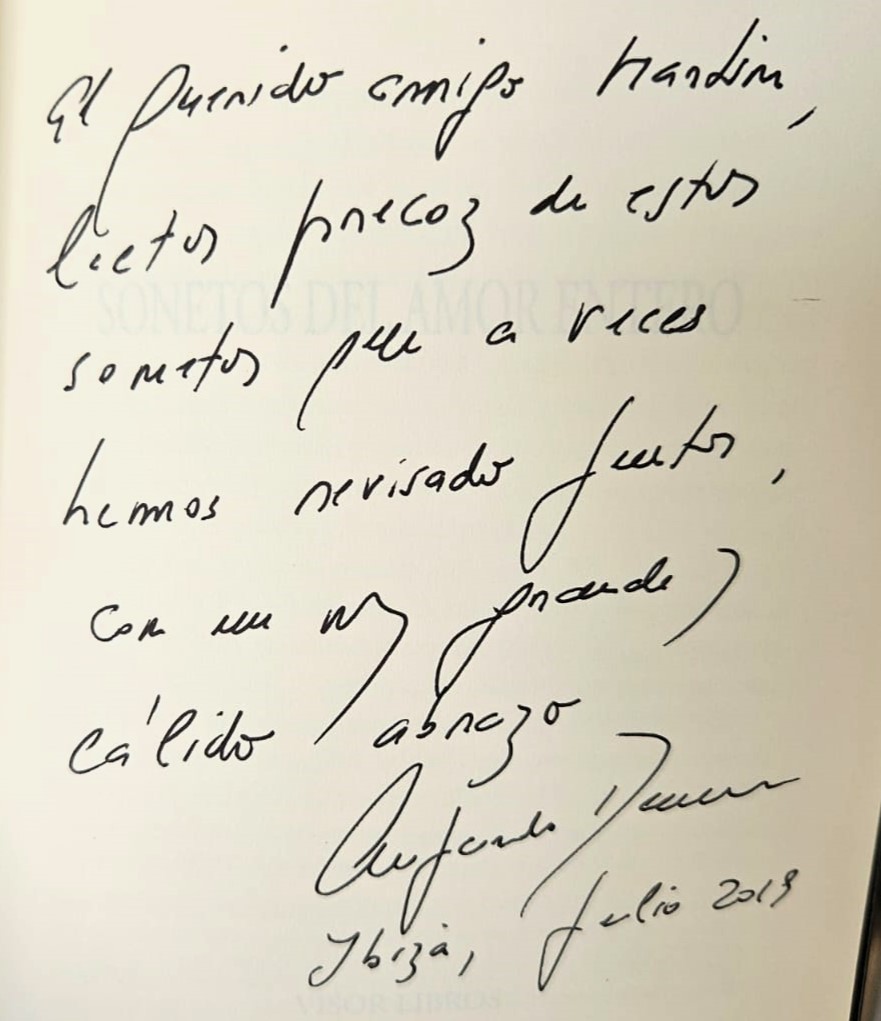 Al querido amigo
lector precoz de estos
SONETOS DEL AMOR ENTERO
sonetos que a veces
hemos revisado juntos,
con un muy grande y
cálido abrazo
Ibiza, julio 2019
VISOR LIBROS